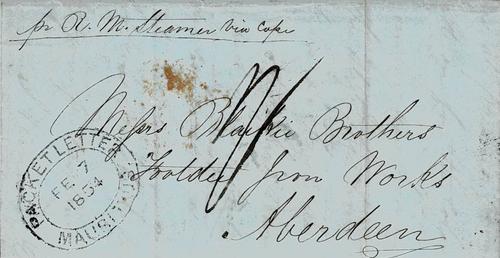 pr R. M. Steamer via Cape
1/
Messrs Blaikie Brothers
Footdee Iron Works
Aberdeen
PACKET LETTER
FE 7
1854
MAURIT